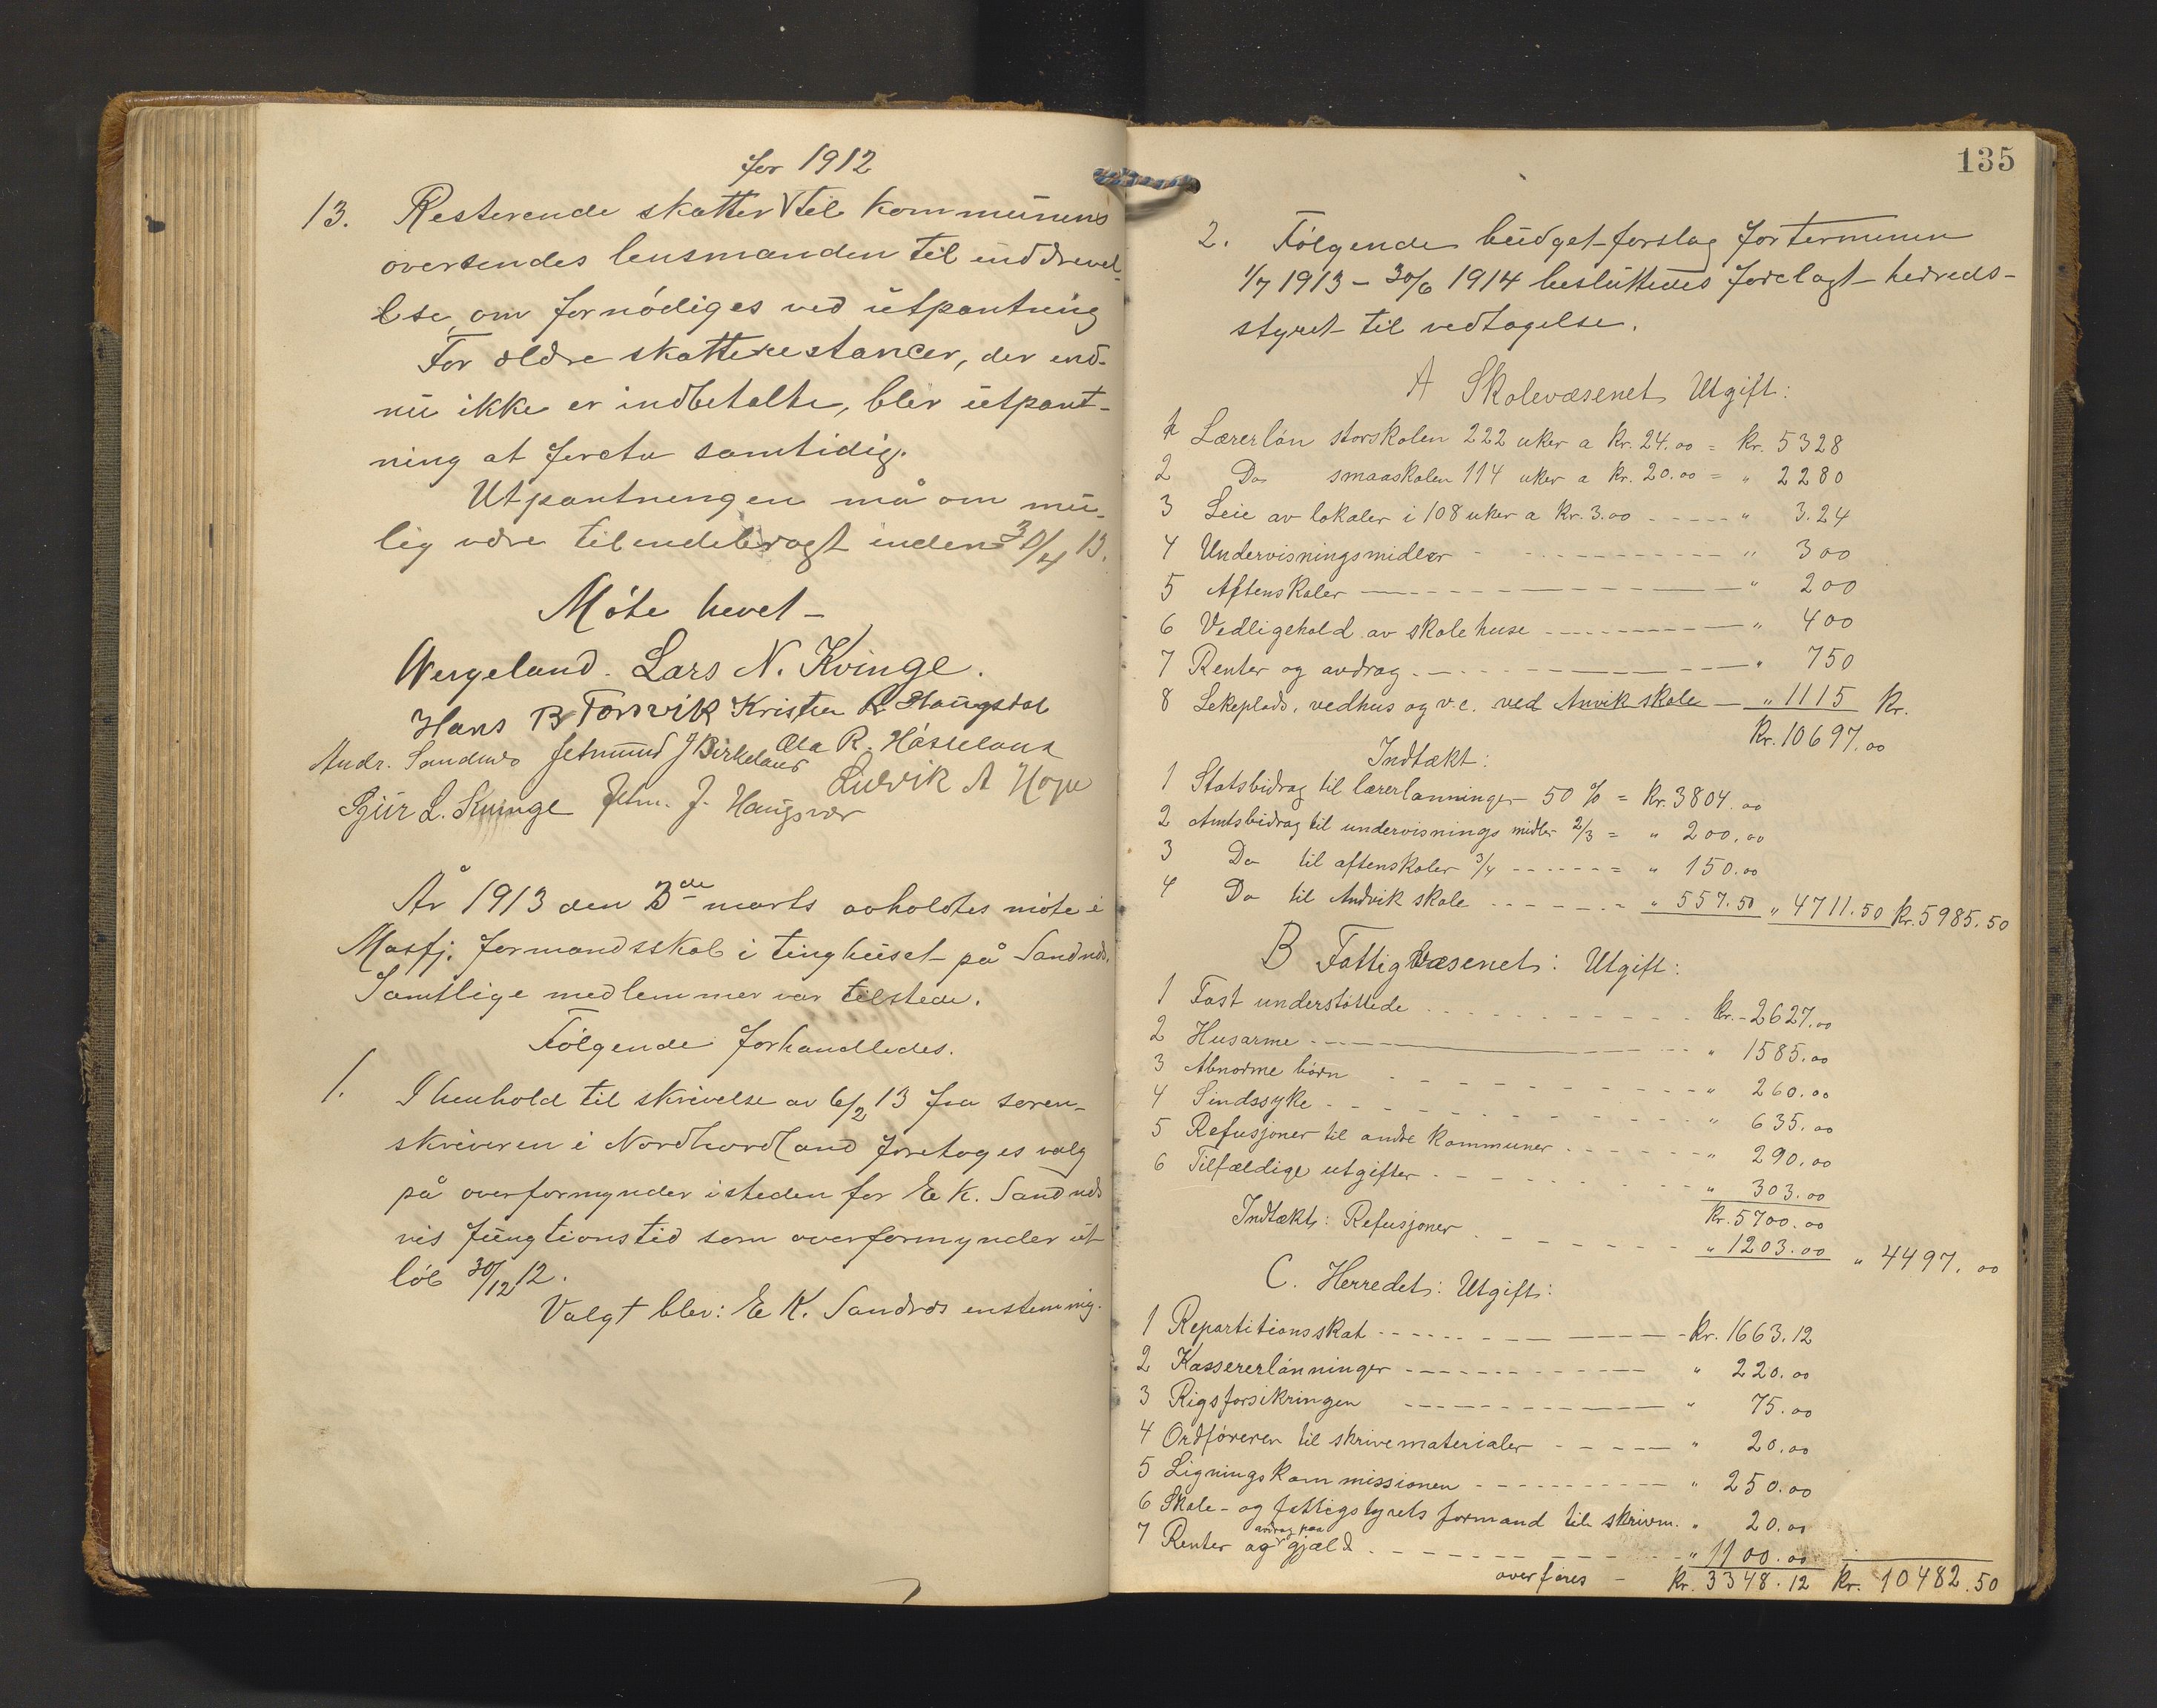 for 1912
13. Resterende skatter til kommunens
oversendes lensmanden til inddrivel-
lse, om fornødiges ved utpantning
For ældre skatterestancer, der end-
nu ikke er indbetalte, blir utpant-
ning at foreta samtidig.
Utpantningen må om mu-
lig være tilendebragt inden 30/4 13.
Møte hevet -
Wergeland. Lars N. Kvinge.
Hans B Torsvik Kristen R Haugsdal
Andr. Sandnes Jetmund J Birkeland Ola R. Hässeland
Sjur L. Kvinge Jetm. J. Haugsvær Ludvik A Hope
År 1913 den 3de marts avholdtes møte i
Masfj. formandsskab i tinghuset på Sandnæs.
Samtlige medlemmer var tilstede.
Følgende forhandledes.
1. I henhold til skrivelse av 6/2 13 fra soren-
skriveren i Nordhordland foretoges valg
på overformynder isteden for E K. Sandnæs
vis fungtionstid som overformynder ut
løb 30/12 12.
Valgt blev: E K. Sandnæs enstemmig.
135
2. Følgende budget-forslag for terminen
1/7 1913 - 30/6 1914 besluttedes forelagt herreds-
styret til vedtagelse.
A Skolevæsenet Utgift:
1 Lærerløn storskolen 222 uker a kr. 24.00 = kr. 5328
2 Do smaaskolen 114 uker a kr. 20.00 = " 2280
3 Leie av lokaler i 108 uker a kr. 3.00 - - - - " 3.24
4 Undervisningsmidler - - - - " 300
5 Aftenskoler - - - - " 200
6 Vedligehold av skolehuse - - - - " 400
7 Renter og avdrag - - - - " 750
8 Lekeplads, vedhus og v.c. ved Anvik skole — " 1115 kr.
Kr. 10697.00
Indtækt:
1 Statsbidrag til lærerlønninger 50 % = kr. 3804.00
2 Amtsbidrag til undervisnings midler 2/3 = " 200.00
3 Do til aftenskoler 3/4 - - - - = " 150.00
4 Do til Andvik skole - - - - " 557.50 " 4711.50 kr. 5985.50
B Fattigvæsenet: Utgift:
1 Fast understøttede - - - - kr. 2627.00
2 Husarme - - - - " 1585.00
3 Abnorme børn - - - - " 260.00
4 Sindssyke - - - - " 635.00
5 Refusjoner til andre kommuner - - - - " 290.00
6 Tilfældige utgifter - - - - " 303.00
Kr. 5700.00
Indtækt: Refusjoner - - - - " 1203.00 " 4497.00
C. Herredet: Utgift:
1 Repartitionsskat - - - - kr. 1663.12
2 Kassererlønninger - - - - " 220.00
3 Rigsforsikringen - - - - " 75.00
4 Ordføreren til skrivematerialer - - - - " 20.00
5 Ligningskommissionen - - - - " 250.00
6 Skole- og fattigstyrets formand til skrivm. " 20.00
7 Renter og avdrag paa gjæld - - - - " 1100.00
overføres - Kr. 3348.12 Kr. 10482.50